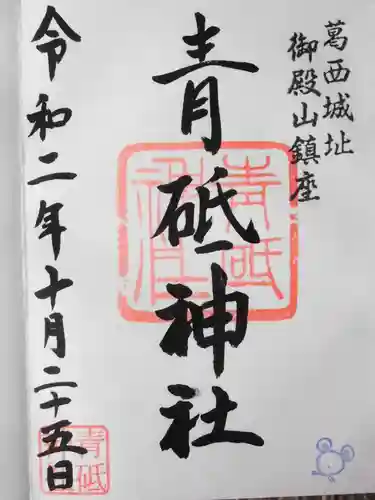 葛西城址
御殿山鎮座
青砥神社
令和二年十月二十五日
青砥
神社
青砥